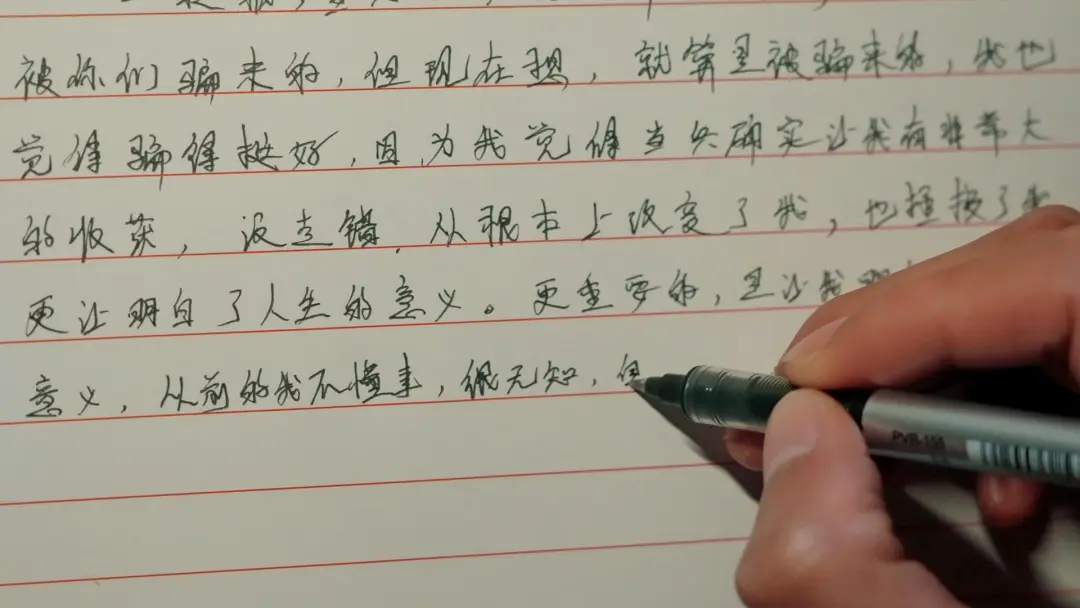 被你们骗来的，但现在想，就算是被骗来的，我也
觉得骗得挺好，因为我觉得当兵确实让我有非常大
的收获，没走错，从根本上改变了我，也挂按了我
更让明白了人生的意义。更重要的，是让我明
意义，从前的我不懂事，很无知，但
PVR-155